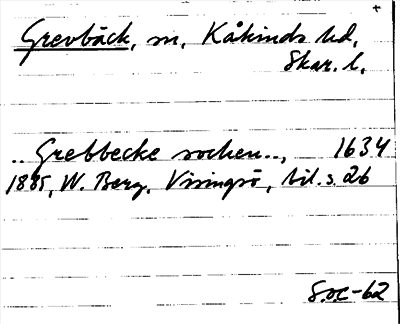 Grevbäck, sn, Kåkinds hd,
Skar. l.
.. Grebbecke sochen.., 1634
1885, W. Berg, Visingsö, bil. s. 26
Soc-62